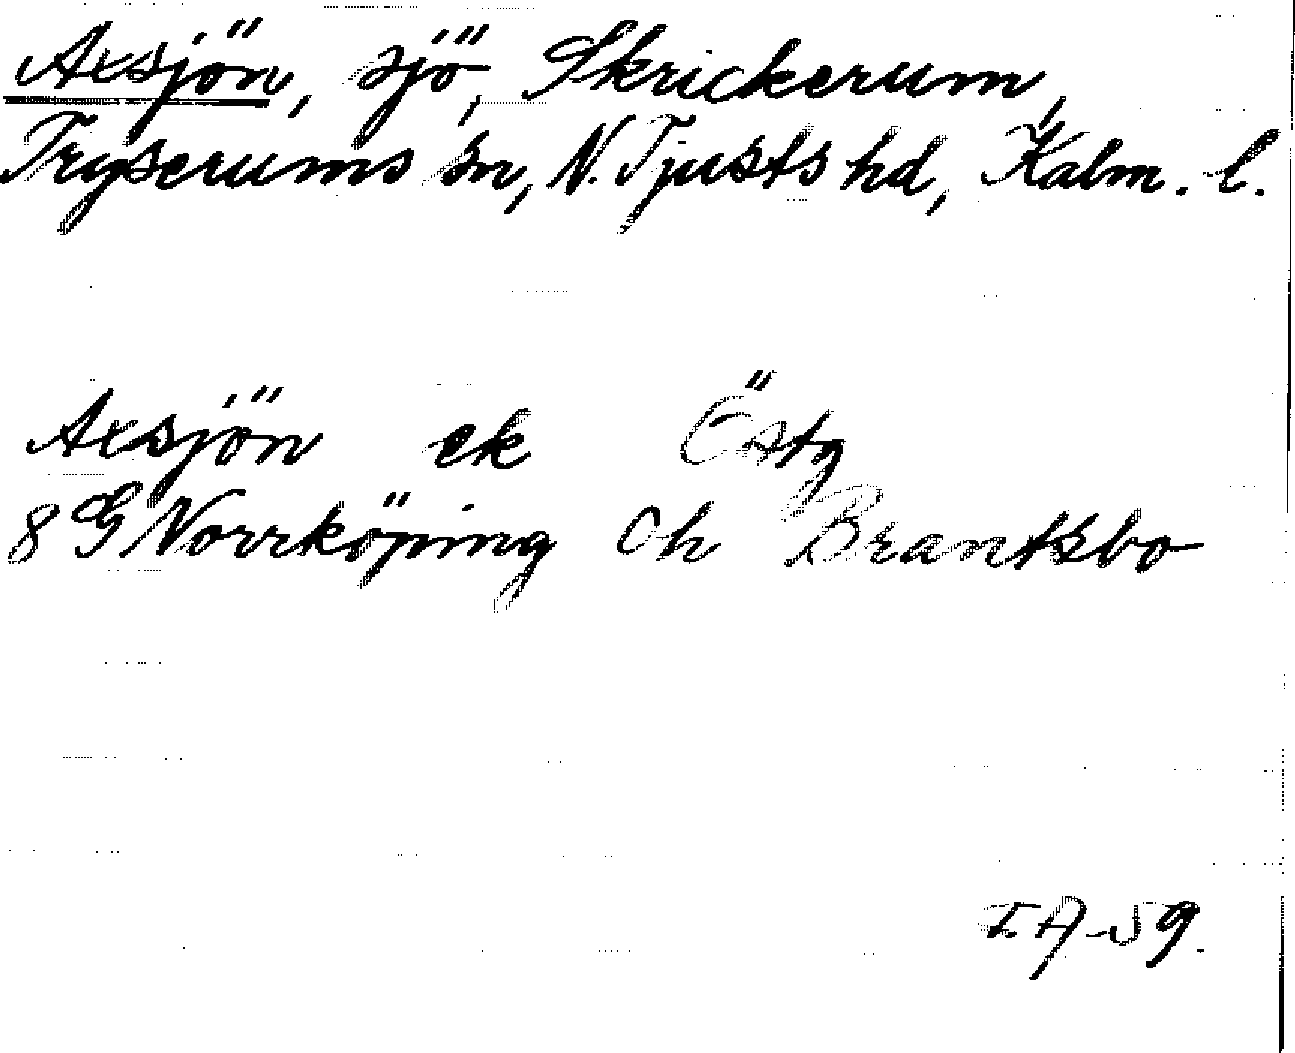 Axsjön, sjö, Skrickerum,
Tryserums sn, N. Tjusts hd, Kalm. l.
Axsjön ek Östg
8 G Norrköping Ch Brantsbo